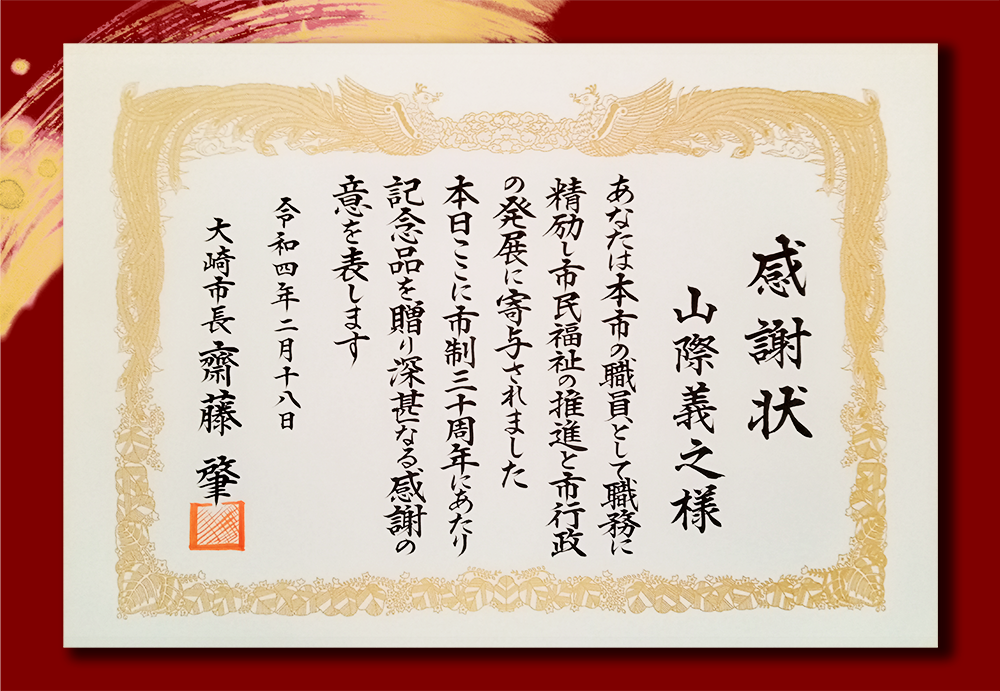 感謝状
山際義之様
あなたは本市の職員として職務に
精励し市民福祉の推進と市行政
の発展に寄与されました
本日ここに市制三十周年にあたり
記念品を贈り深甚なる感謝の
意を表します
令和四年二月十八日
大崎市長 齋藤 肇